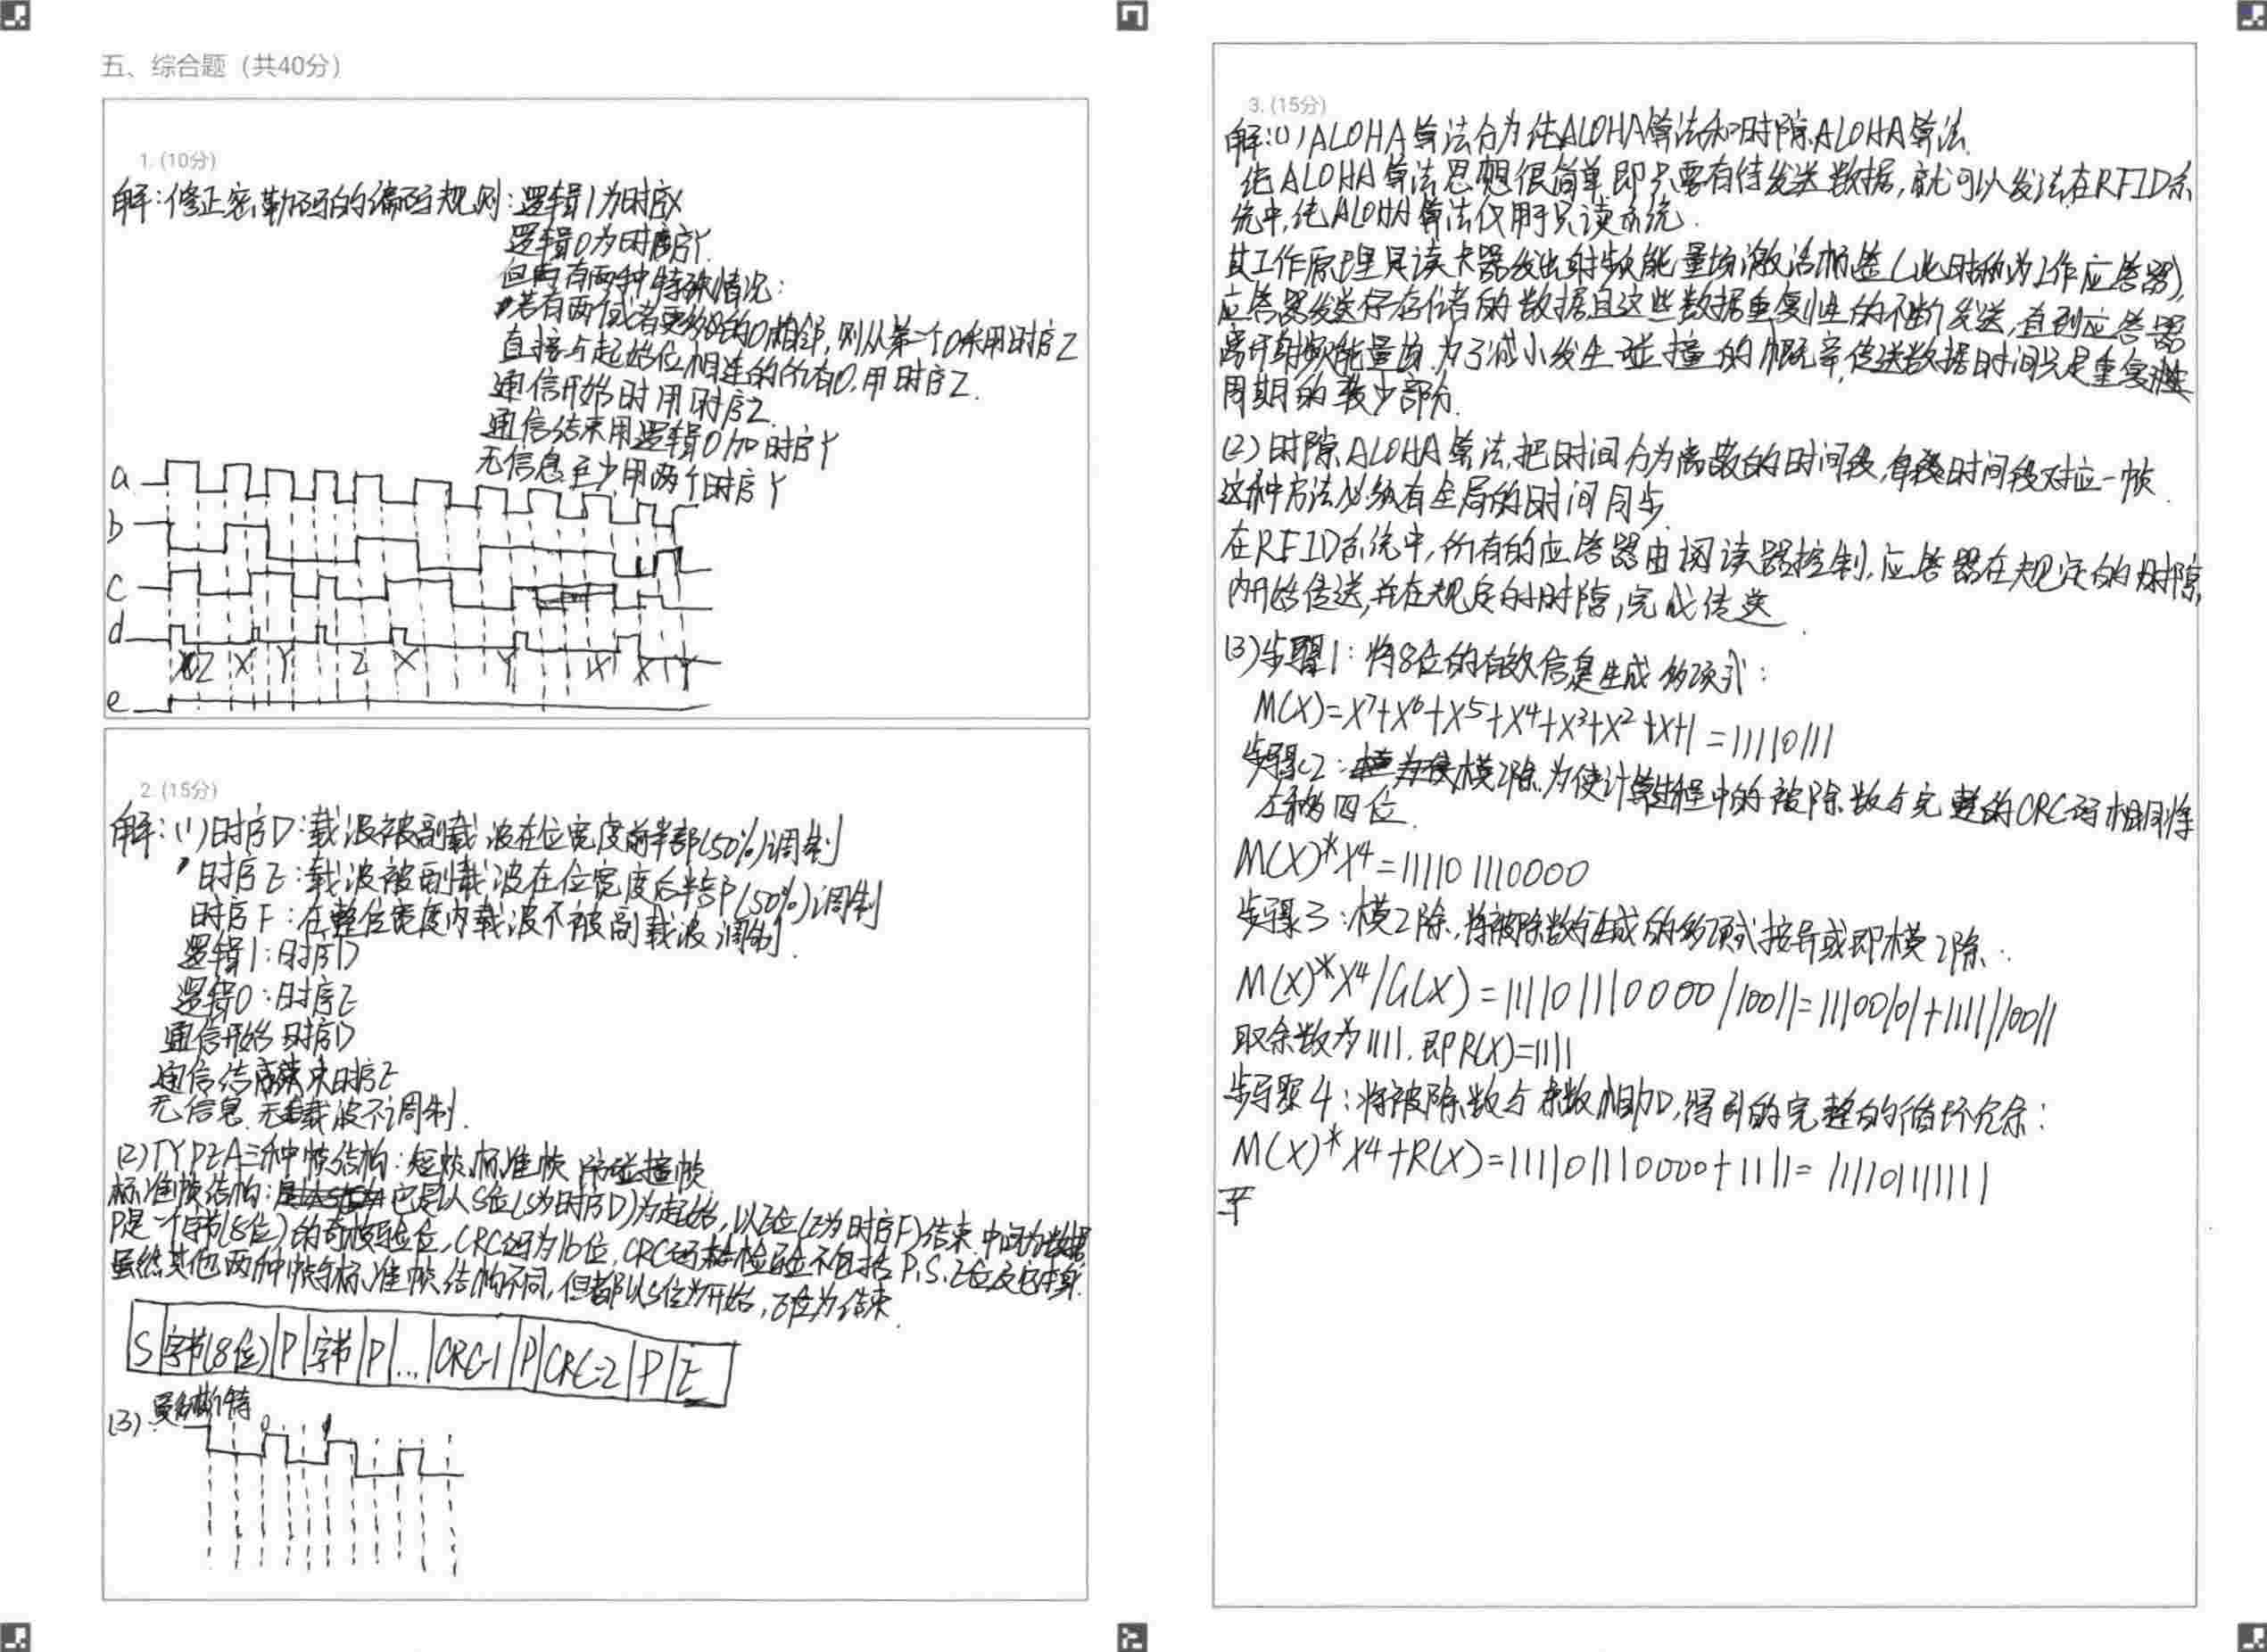 五、综合题（共40分）
1. (10分)
解:修正密勒码的编码规则:逻辑1为时序X
逻辑0为时序Y.
但由有两种特殊情况:
若有两个或者更多的0相邻,则从第二个0采用时序Z
直接与起始位相连的所有0,用时序Z.
通信开始时用时序Z.
通信结束用逻辑0加时序Y
无信息至少用两个时序Y
a
b
c
d
Z X Y Z X Y X X Y
e
2. (15分)
解:(1)时序D:载波被副载波在位宽度前半部(50%)调制
时序E:载波被副载波在位宽度后半部(50%)调制
时序F:在整位宽度内载波不被副载波调制.
逻辑1:时序D
逻辑0:时序E
通信开始时序D
通信结束时序E
无信息.无载波不调制.
(2)TYPEA三种帧结构:短帧,标准帧,防碰撞帧
标准帧结构:它是以S位(S为时序D)为起始,以E位(E为时序F)结束.中间为数据,
P是一个字节(8位)的奇校验位,CRC码为16位,CRC码检验不包括P.S.E位及它本身.
虽然其他两种帧与标准帧结构不同,但都以S位为开始,E位为结束.
S 字节(8位) P 字节 P ... CRC-1 P CRC-2 P E
(3) 曼彻斯特
3. (15分)
解:(1)ALOHA算法分为纯ALOHA算法和时隙ALOHA算法.
纯ALOHA算法思想很简单,即只要有待发送数据,就可以发法,在RFID系
统中,纯ALOHA算法仅用于只读系统.
其工作原理是读卡器发出射频能量场激活标签(此时称为工作应答器),
应答器发送存储者的数据且这些数据重复性的不断发送,直到应答器
离开射频能量场.为了减小发生碰撞的概率,传送数据时间只是重复
周期的较少部分.
(2)时隙ALOHA算法,把时间分为离散的时间段,每段时间段对应一帧.
这种方法必须有全局的时间同步.
在RFID系统中,所有的应答器由阅读器控制,应答器在规定的时隙
内开始传送,并在规定的时隙,完成传送.
(3)步骤1:将8位的有效信息生成多项式:
M(X)=X⁷+X⁶+X⁵+X⁴+X³+X²+X+1=11110111
步骤2:模2除,为使计算过程中的被除数与完整的CRC码相同将
左移四位.
M(X)*X⁴=111101110000
步骤3:模2除,将被除数与生成的多项式按异或即模2除:
M(X)*X⁴/G(X)=111101110000/10011=11100101+1111/10011
取余数为1111,即R(X)=1111
步骤4:将被除数与余数相加,得到的完整的循环冗余:
M(X)*X⁴+R(X)=111101110000+1111=111101111111